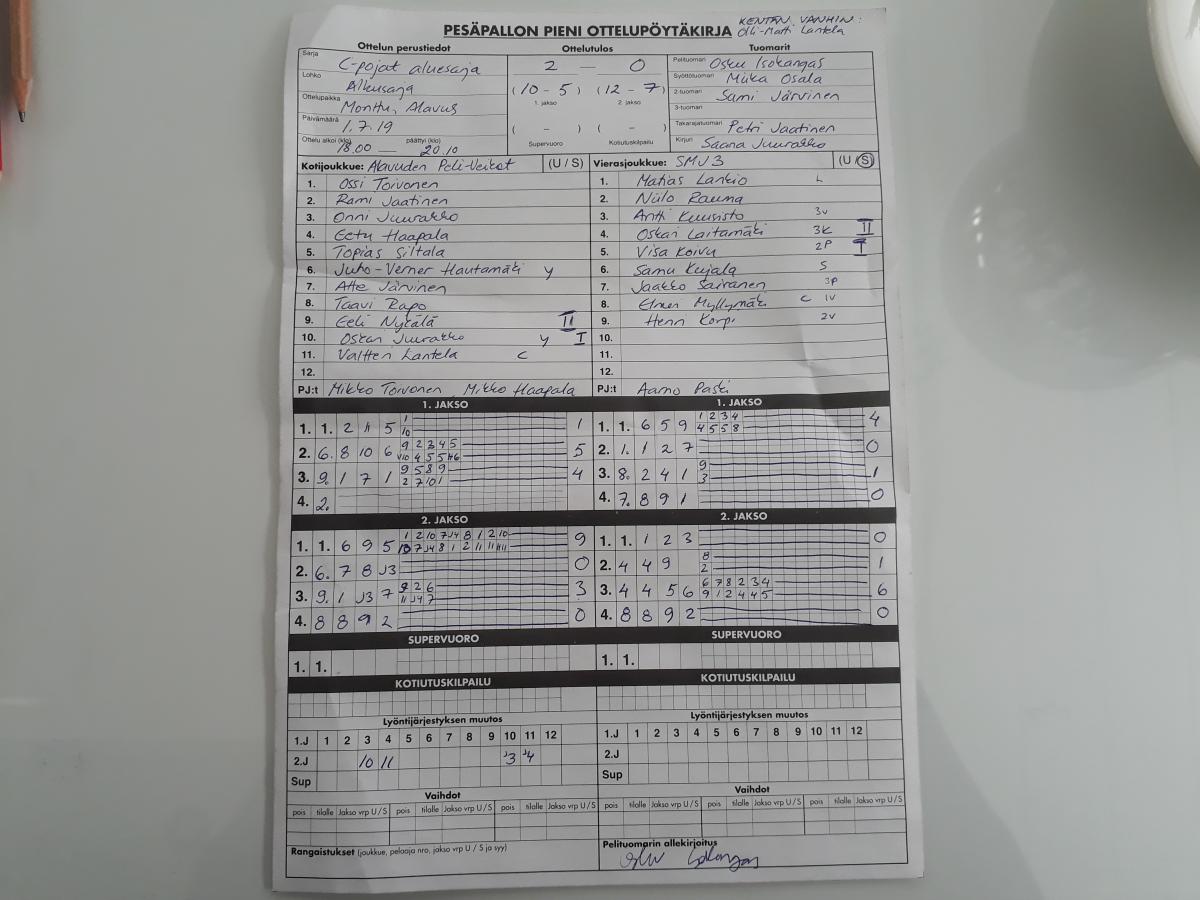 PESÄPALLON PIENI OTTELUPÖYTÄKIRJA
KENTÄN VANHIN:
Olli-Matti Lantela
Ottelun perustiedot Ottelutulos Tuomarit
Sarja C-pojat aluesarja
Lohko Alkusarja
Ottelupaikka Monttu, Alavus
Päivämäärä 1.7.19
Ottelu alkoi (klo) 18.00 — päättyi (klo) 20.10
2 — 0
(10 - 5) (12 - 7)
1. jakso 2. jakso
( - ) ( - )
Supervuoro Kotiutuskilpailu
Pelituomari Osku Isokangas
Syöttötuomari Miika Osala
2-tuomari Sami Järvinen
3-tuomari
Takarajatuomari Petri Jaatinen
Kirjuri Saana Juurakko
Kotijoukkue: Alavuden Peli-Veikot (U / S)
1. Ossi Toivonen
2. Rami Jaatinen
3. Onni Juurakko
4. Eetu Haapala
5. Topias Siltala
6. Juho-Verner Hautamäki y
7. Atte Järvinen
8. Taavi Rapo
9. Eeli Nykälä II
10. Oskari Juurakko y I
11. Valtteri Lantela c
12.
PJ:t Mikko Toivonen, Mikko Haapala
Vierasjoukkue: SMJ 3 (U / S)
1. Matias Lankio L
2. Niilo Rauma
3. Antti Kuusisto 3v
4. Oskari Laitamäki 3k II
5. Visa Koivu 2P I
6. Samu Kujala S
7. Jaakko Sairanen 3p
8. Elmeri Myllymäki c 1v
9. Henri Korpi 2v
10.
11.
12.
PJ:t Aarno Paski
1. JAKSO
1. 1. 2 4 5 1 1
10
2. 6. 8 10 6 9 2 3 4 5 5
3. 9. 1 7 1 9 5 8 9 4
2 7 10 1
4. 2.
1. JAKSO
1. 1. 6 5 9 1 2 3 4 4
4 5 5 8
2. 1. 1 2 7 0
3. 8. 2 4 1 9 1
3
4. 7. 8 9 1 0
2. JAKSO
1. 1. 6 9 5 1 2 10 7 J4 8 1 2 10 9
2. 6. 7 8 J3 0
3. 9. 1 J3 7 9 2 6 3
11 J4 7
4. 8 8 9 2 0
2. JAKSO
1. 1. 1 2 3 0
2. 4 4 9 8 1
2
3. 4 4 5 6 6 7 8 2 3 4 6
9 1 2 4 4 5
4. 8 8 9 2 0
SUPERVUORO SUPERVUORO
1. 1. 1. 1.
KOTIUTUSKILPAILU KOTIUTUSKILPAILU
Lyöntijärjestyksen muutos Lyöntijärjestyksen muutos
1.J 1 2 3 4 5 6 7 8 9 10 11 12
2.J 10 11 J3 J4
Sup
1.J 1 2 3 4 5 6 7 8 9 10 11 12
2.J
Sup
Vaihdot Vaihdot
pois tilalle Jakso vrp U / S pois tilalle Jakso vrp U / S pois tilalle Jakso vrp U / S
pois tilalle Jakso vrp U / S pois tilalle Jakso vrp U / S pois tilalle Jakso vrp U / S
Rangaistukset (joukkue, pelaaja nro, jakso vrp U / S ja syy)
Pelituomarin allekirjoitus